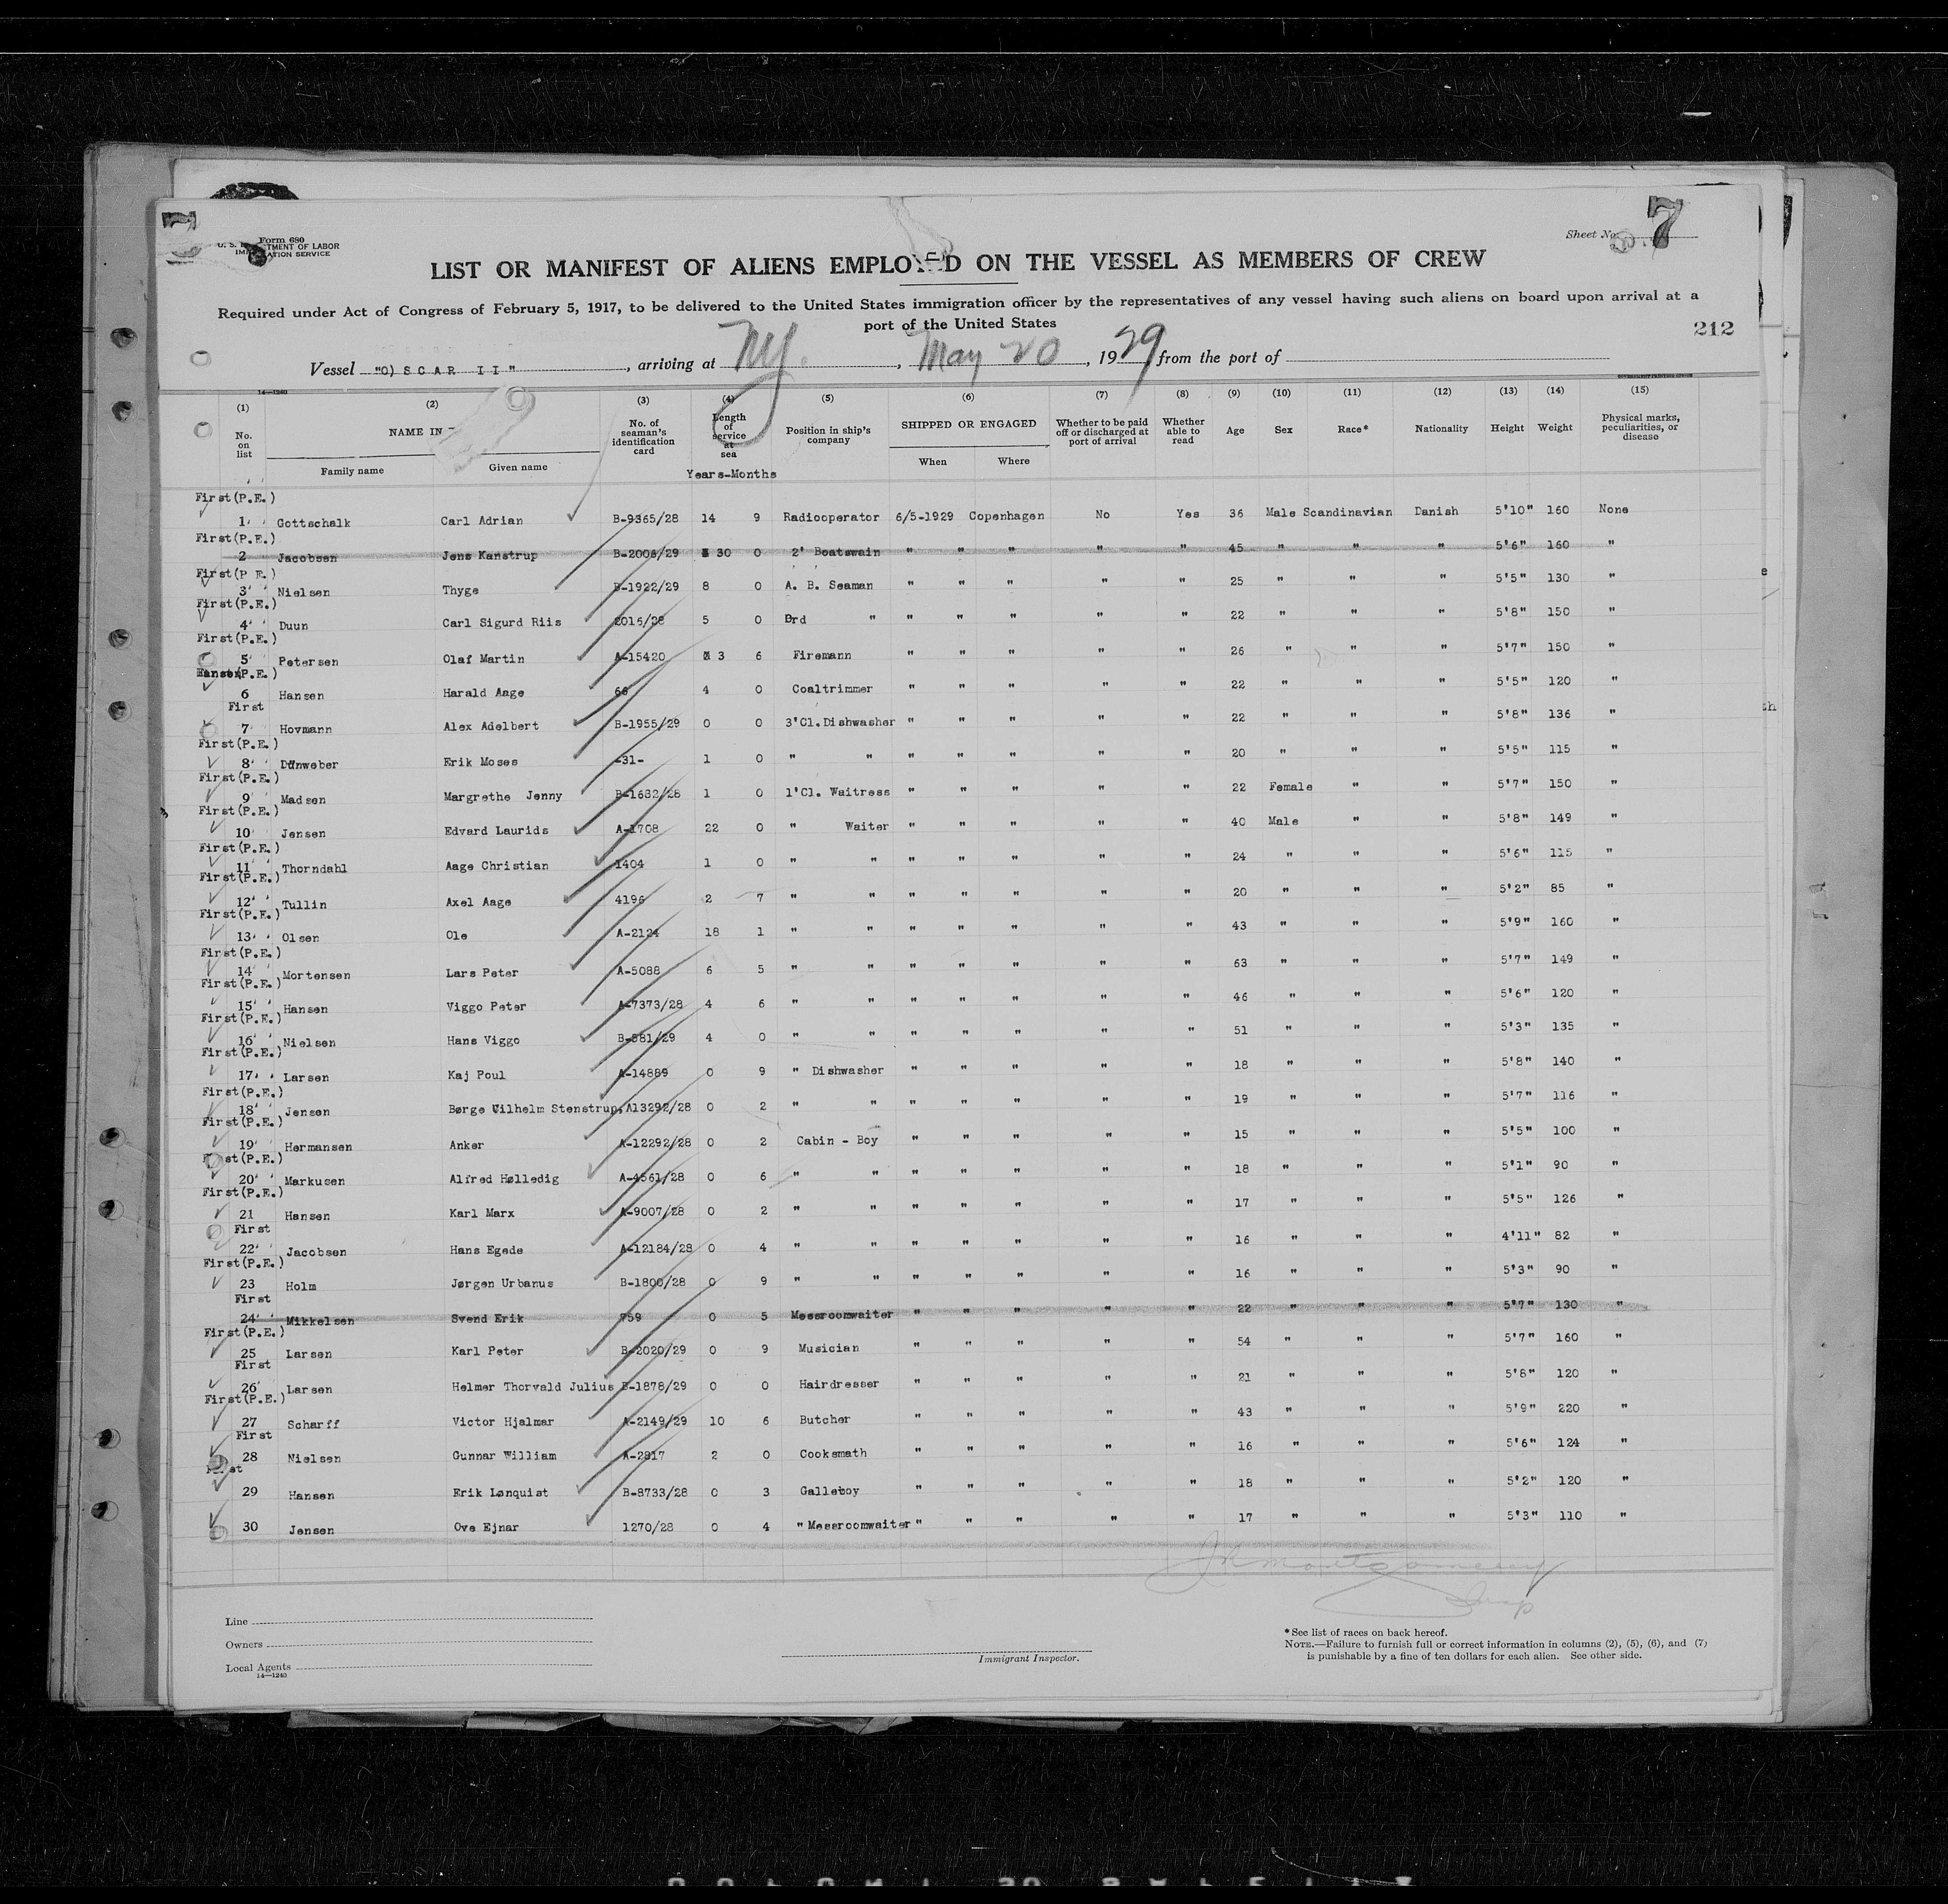 7
Form 680
U. S. DEPARTMENT OF LABOR
IMMIGRATION SERVICE
Sheet No. 7
LIST OR MANIFEST OF ALIENS EMPLOYED ON THE VESSEL AS MEMBERS OF CREW
Required under Act of Congress of February 5, 1917, to be delivered to the United States immigration officer by the representatives of any vessel having such aliens on board upon arrival at a
port of the United States
212
Vessel "O) S C A R I I ", arriving at NY., May 20, 1929 from the port of
14—1240
(1) (2) (3) (4) (5) (6) (7) (8) (9) (10) (11) (12) (13) (14) (15)
No. on list NAME IN Family name Given name No. of seaman's identification card Length of service at sea Position in ship's company SHIPPED OR ENGAGED When Where Whether to be paid off or discharged at port of arrival Whether able to read Age Sex Race* Nationality Height Weight Physical marks, peculiarities, or disease
Years-Months
First(P.E.)
1 Gottschalk Carl Adrian B-9365/28 14 9 Radiooperator 6/5-1929 Copenhagen No Yes 36 Male Scandinavian Danish 5'10" 160 None
First(P.E.)
2 Jacobsen Jens Kanstrup B-2008/29 30 0 2' Boatswain " " " " " 45 " " " 5'6" 160 "
First(P E.)
3 Nielsen Thyge B-1922/29 8 0 A. B. Seaman " " " " " 25 " " " 5'5" 130 "
First(P.E.)
4 Duun Carl Sigurd Riis 2016/28 5 0 Ord " " " " " " 22 " " " 5'8" 150 "
First(P.E.)
5 Petersen Olaf Martin A-15420 3 6 Firemann " " " " " 26 " " " 5'7" 150 "
(P.E.)
6 Hansen Harald Aage 66 4 0 Coaltrimmer " " " " " 22 " " " 5'5" 120 "
First
7 Hovmann Alex Adelbert B-1955/29 0 0 3'Cl.Dishwasher " " " " " 22 " " " 5'8" 136 "
First(P.E.)
8 Dünweber Erik Moses -31- 1 0 " " " " " " " 20 " " " 5'5" 115 "
First(P.E.)
9 Madsen Margrethe Jenny B-1632/28 1 0 1'Cl. Waitress " " " " " 22 Female " " 5'7" 150 "
First(P.E.)
10 Jensen Edvard Laurids A-1708 22 0 " Waiter " " " " " 40 Male " " 5'8" 149 "
First(P.E.)
11 Thorndahl Aage Christian 1404 1 0 " " " " " " " 24 " " " 5'6" 115 "
First(P.E.)
12 Tullin Axel Aage 4196 2 7 " " " " " " " 20 " " " 5'2" 85 "
First(P.E.)
13 Olsen Ole A-2124 18 1 " " " " " " " 43 " " " 5'9" 160 "
First(P.E.)
14 Mortensen Lars Peter A-5088 6 5 " " " " " " " 63 " " " 5'7" 149 "
First(P.E.)
15 Hansen Viggo Peter A-7373/28 4 6 " " " " " " " 46 " " " 5'6" 120 "
First(P.E.)
16 Nielsen Hans Viggo B-581/29 4 0 " " " " " " " 51 " " " 5'3" 135 "
First(P.E.)
17 Larsen Kaj Poul A-14889 0 9 " Dishwasher " " " " " 18 " " " 5'8" 140 "
First(P.E.)
18 Jensen Børge Vilhelm Stenstrup, A13292/28 0 2 " " " " " " " 19 " " " 5'7" 116 "
First(P.E.)
19 Hermansen Anker A-12292/28 0 2 Cabin - Boy " " " " " 15 " " " 5'5" 100 "
First(P.E.)
20 Markusen Alfred Hølledig A-4561/28 0 6 " " " " " " " 18 " " " 5'1" 90 "
First(P.E.)
21 Hansen Karl Marx A-9007/28 0 2 " " " " " " " 17 " " " 5'5" 126 "
First
22 Jacobsen Hans Egede A-12184/28 0 4 " " " " " " " 16 " " " 4'11" 82 "
First(P.E.)
23 Holm Jørgen Urbanus B-1800/28 0 9 " " " " " " " 16 " " " 5'3" 90 "
First
24 Mikkelsen Svend Erik 759 0 5 Messroomwaiter " " " " " 22 " " " 5'7" 130 "
First(P.E.)
25 Larsen Karl Peter B-2020/29 0 9 Musician " " " " " 54 " " " 5'7" 160 "
First
26 Larsen Helmer Thorvald Julius B-1878/29 0 0 Hairdresser " " " " " 21 " " " 5'8" 120 "
First(P.E.)
27 Scharff Victor Hjalmar A-2149/29 10 6 Butcher " " " " " 43 " " " 5'9" 220 "
First
28 Nielsen Gunnar William A-2817 2 0 Cooksmath " " " " " 16 " " " 5'6" 124 "
First
29 Hansen Erik Lønquist B-8733/28 0 3 Galleboy " " " " " 18 " " " 5'2" 120 "
30 Jensen Ove Ejnar 1270/28 0 4 " Messroomwaiter " " " " " 17 " " " 5'3" 110 "
JR Montgomery
Insp
Line
Owners
Local Agents
14—1240
Immigrant Inspector.
* See list of races on back hereof.
NOTE.—Failure to furnish full or correct information in columns (2), (5), (6), and (7)
is punishable by a fine of ten dollars for each alien. See other side.